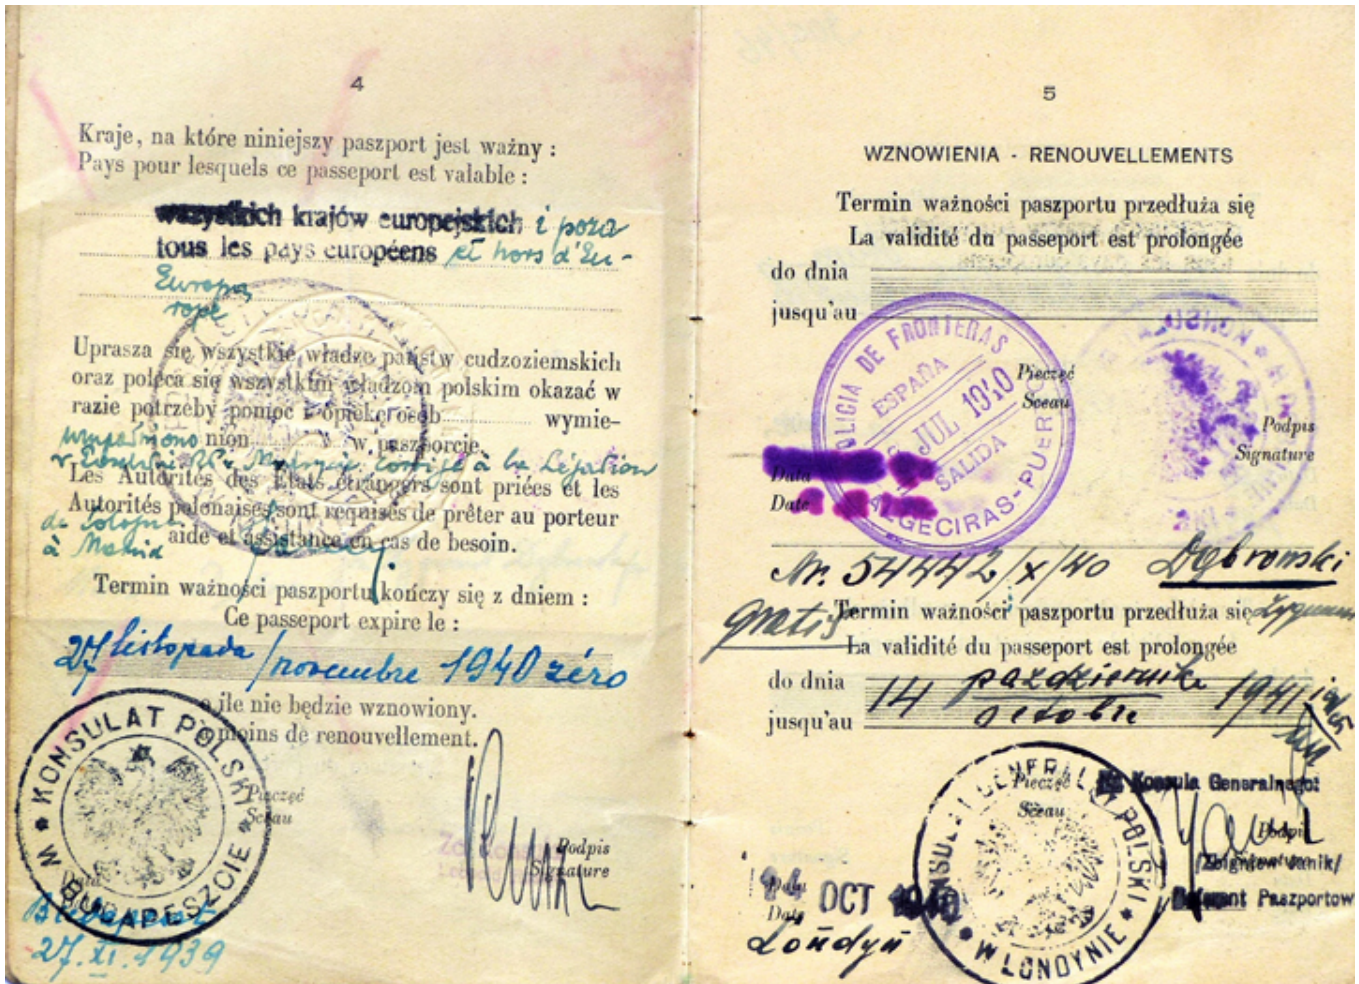 4
Kraje, na które niniejszy paszport jest ważny :
Pays pour lesquels ce passeport est valable :
wszystkich krajów europejskich i poza
tous les pays européens et hors d'Eu-
Europą
rope
Uprasza się wszystkie władze państw cudzoziemskich
oraz poleca się wszystkim władzom polskim okazać w
razie potrzeby pomoc i opiekę osob wymie-
nion w paszporcie.
corrigé à la Légation
Les Autorités des Etats étrangers sont priées et les
Autorités polonaises sont requises de prêter au porteur
de Pologne
à Madrid
aide et assistance en cas de besoin.
Termin ważności paszportu kończy się z dniem :
Ce passeport expire le :
27 listopada / novembre 1940 zéro
o ile nie będzie wznowiony.
à moins de renouvellement.
KONSULAT POLSKI
W BUDAPESZCIE
Pieczęć
Sceau
Podpis
Signature
Data
Budapeszt
27.XI.1939
5
WZNOWIENIA - RENOUVELLEMENTS
Termin ważności paszportu przedłuża się
La validité du passeport est prolongée
do dnia
jusqu'au
POLICIA DE FRONTERAS
ESPAÑA
JUL 1940
SALIDA
ALGECIRAS-PUER
Pieczęć
Sceau
Podpis
Signature
Data
Date
Nr. 54442/X/40 Dąbrowski
gratis
Termin ważności paszportu przedłuża się
La validité du passeport est prolongée
do dnia
jusqu'au
14 października 1941
octobre
KONSULAT GENERALNY POLSKI
W LONDYNIE
Pieczęć
Sceau
Konsula Generalnego:
Podpis
Signature
/Zbigniew Janik/
Referent Paszportow
Data
Date
14 OCT 1940
Londyn